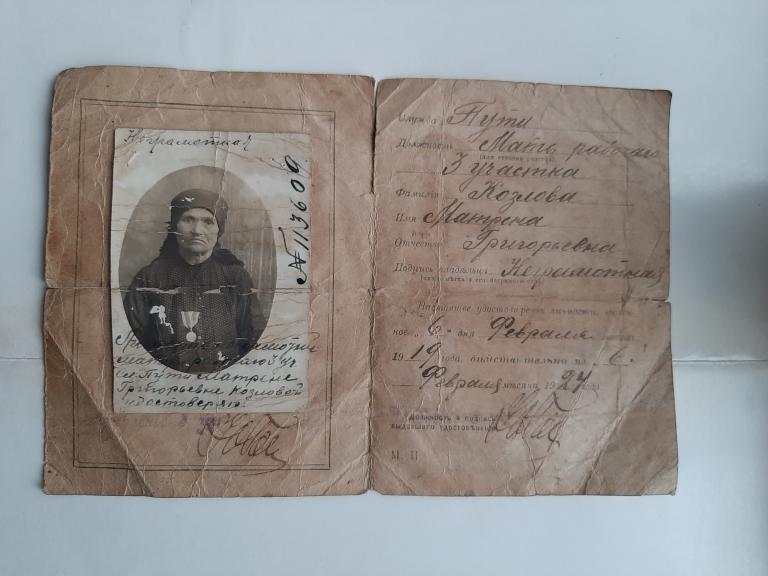 Неграмотная
№ 113609
Матрене
Григорьевне Козловой
удостоверяю
Служба Пути
Должность Мать рабочаго
3 участка
Фамилія Козлова
Имя Матрена
Отчество Григорьевна
Подпись владельца Неграмотная
Настоящее удостоверение личности, выдан-
ное „6" дня Февраля
1919 года, действительно по „6"
Февраля месяца 1924 года
Должность и подпись
выдавшего удостоверение
М. П.